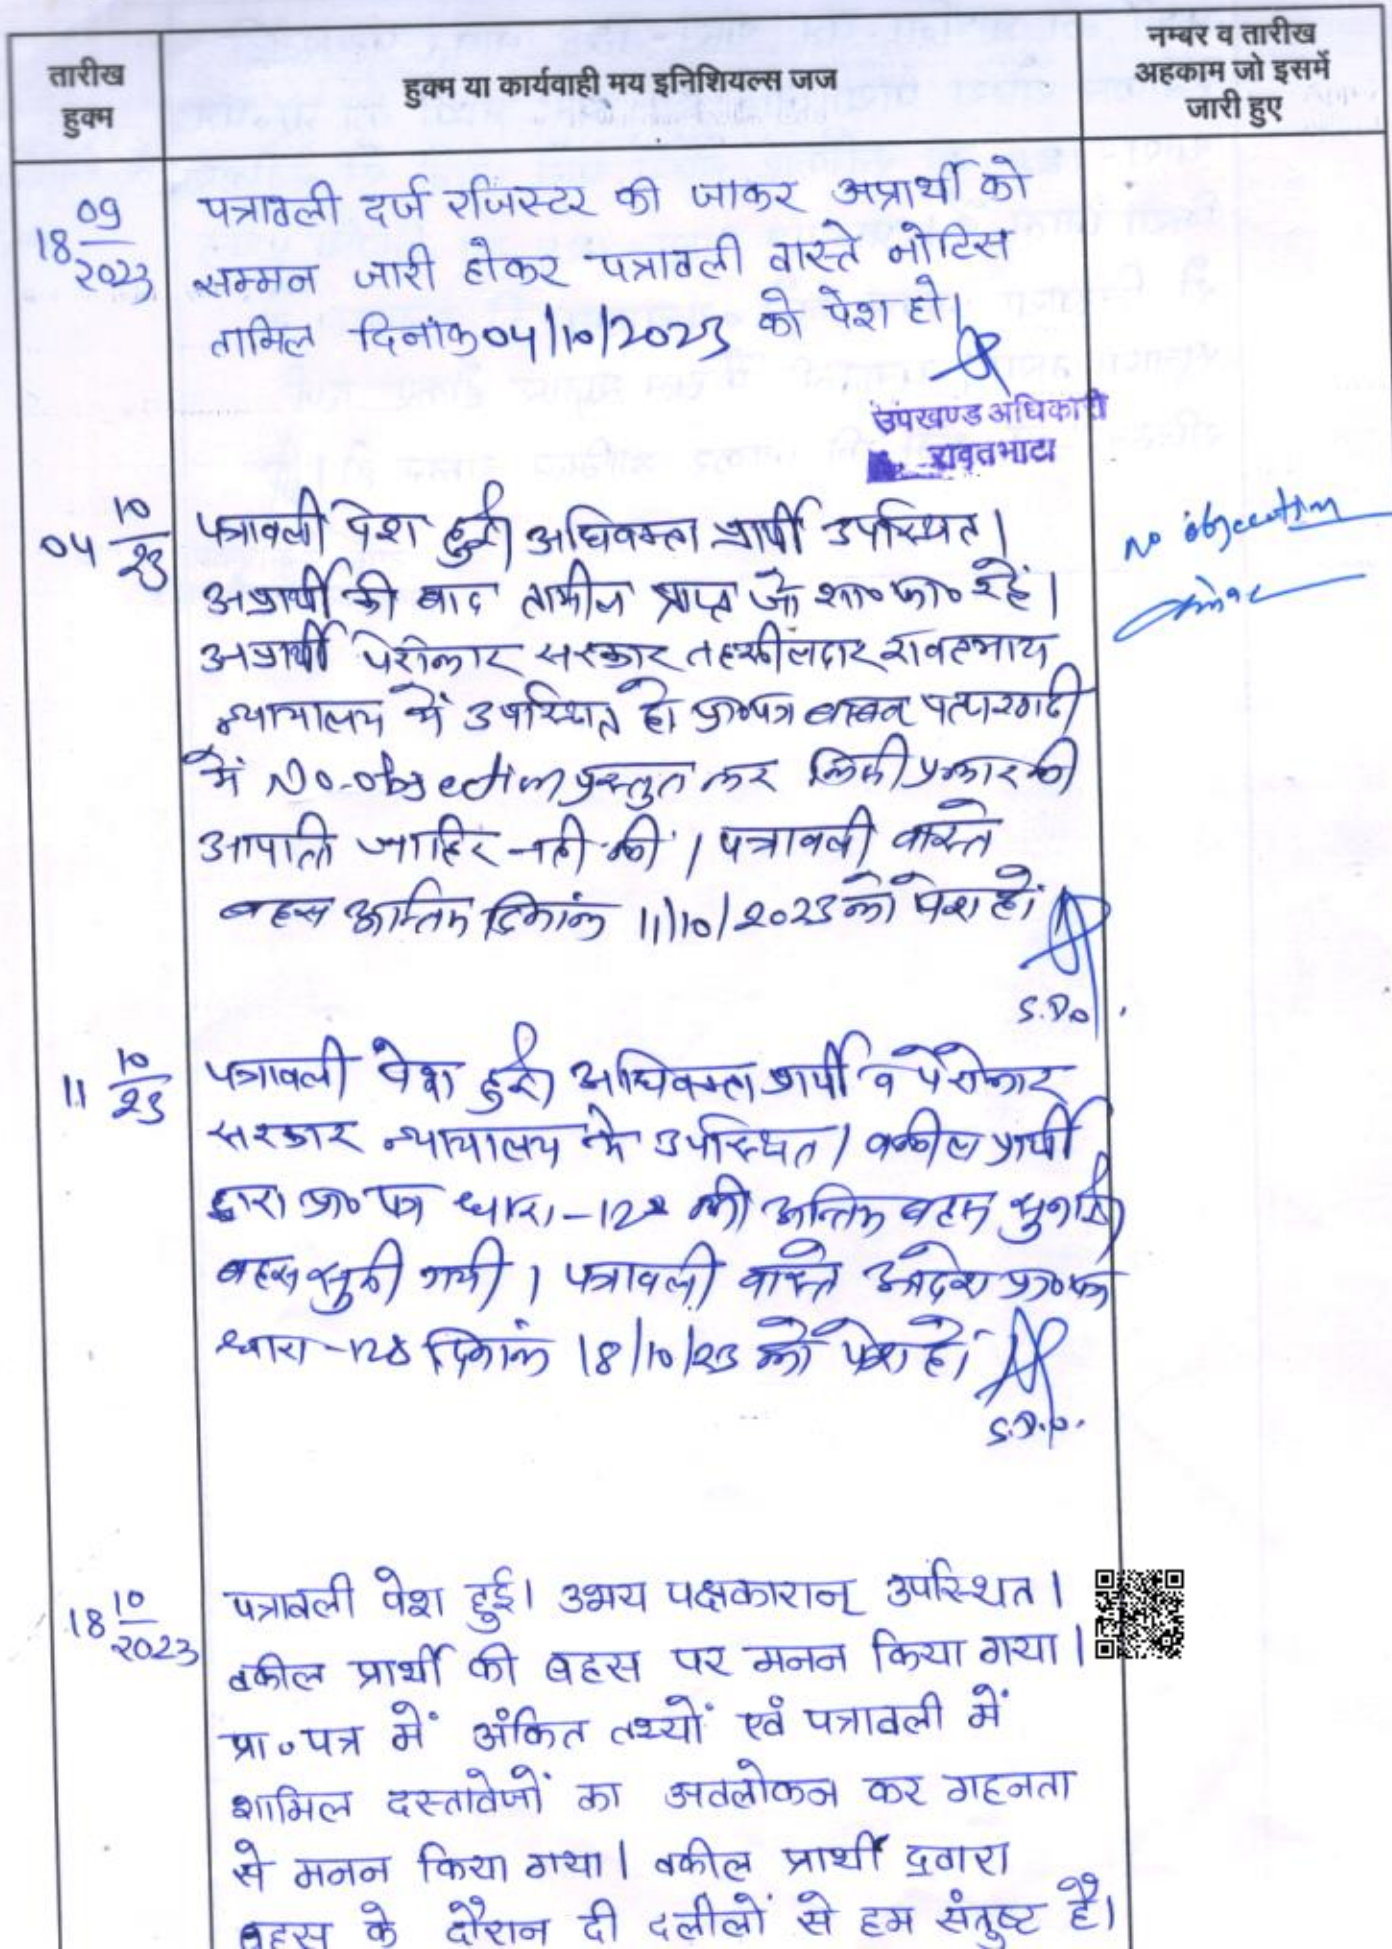 तारीख
हुक्म
हुक्म या कार्यवाही मय इनिशियल्स जज
नम्बर व तारीख
अहकाम जो इसमें
जारी हुए
18 09/2023
पत्रावली दर्ज रजिस्टर की जाकर अप्रार्थी को
सम्मन जारी होकर पत्रावली वास्ते नोटिस
तामिल दिनांक 04/10/2023 को पेश हो।
उपखण्ड अधिकारी
रावतभाटा
04 10/23
पत्रावली पेश हुई। अधिवक्ता प्रार्थी उपस्थित।
अप्रार्थी की बाद तामील प्राप्त जो शा०फा० रहे।
अप्रार्थी पेरोकार सरकार तहसीलदार रावतभाटा
न्यायालय में उपस्थित हो प्रा०पत्र बाबत पत्थरगढी
में No-objection प्रस्तुत कर किसी प्रकार की
आपत्ती जाहिर नही की। पत्रावली वास्ते
बहस अन्तिम दिनांक 11/10/2023 को पेश हो।
S.D.O.
No objection
11 10/23
पत्रावली पेश हुई। अधिवक्ता प्रार्थी व पेरोकार
सरकार न्यायालय में उपस्थित। वकील प्रार्थी
द्वारा प्रा० पत्र धारा-128 की अन्तिम बहस सुनाई।
बहस सुनी गयी। पत्रावली वास्ते आदेश प्रा०पत्र
धारा-128 दिनांक 18/10/23 को पेश हो।
S.D.O.
18 10/2023
पत्रावली पेश हुई। उभय पक्षकारान् उपस्थित।
वकील प्रार्थी की बहस पर मनन किया गया।
प्रा०पत्र में अंकित तथ्यों एवं पत्रावली में
शामिल दस्तावेजों का अवलोकन कर गहनता
से मनन किया गया। वकील प्रार्थी द्वारा
बहस के दौरान दी दलीलों से हम संतुष्ट है।